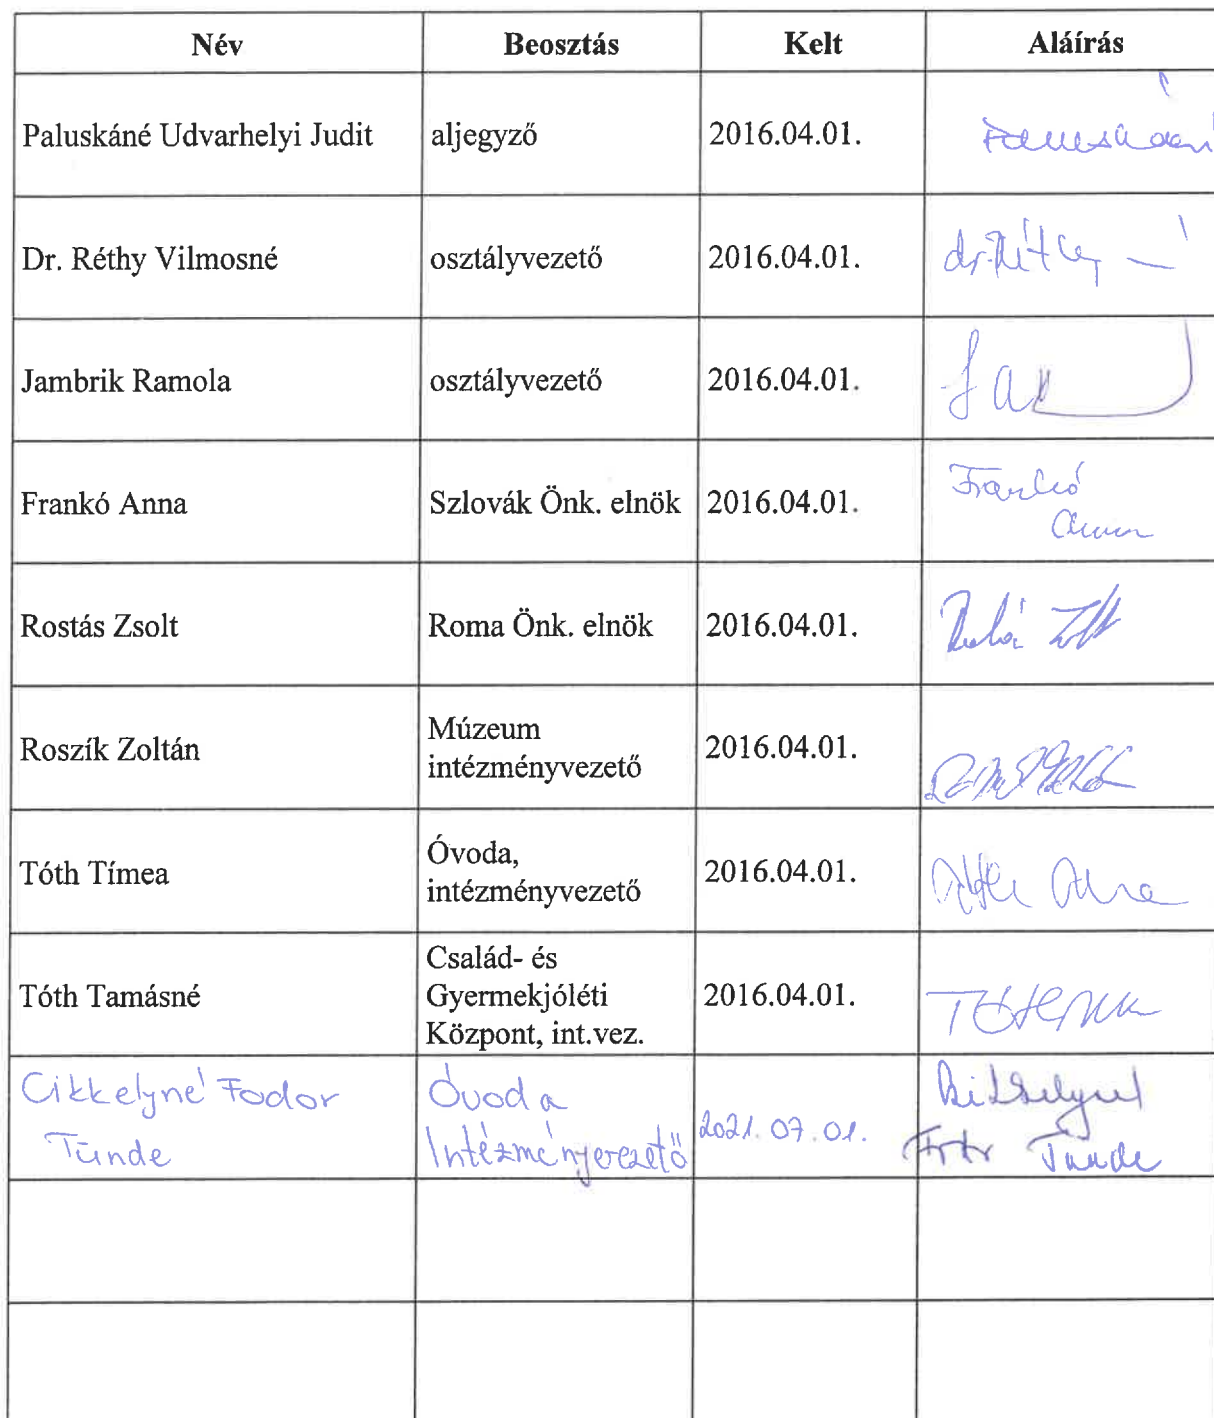 Név Beosztás Kelt Aláírás
Paluskáné Udvarhelyi Judit aljegyző 2016.04.01.
Dr. Réthy Vilmosné osztályvezető 2016.04.01. dr. Réthy
Jambrik Ramola osztályvezető 2016.04.01.
Frankó Anna Szlovák Önk. elnök 2016.04.01. Frankó
Anna
Rostás Zsolt Roma Önk. elnök 2016.04.01.
Roszík Zoltán Múzeum
intézményvezető 2016.04.01.
Tóth Tímea Óvoda,
intézményvezető 2016.04.01.
Tóth Tamásné Család- és
Gyermekjóléti
Központ, int.vez. 2016.04.01.
Cikkelyné Fodor
Tünde
Óvoda
Intézményvezető
2021.07.01.
Tünde